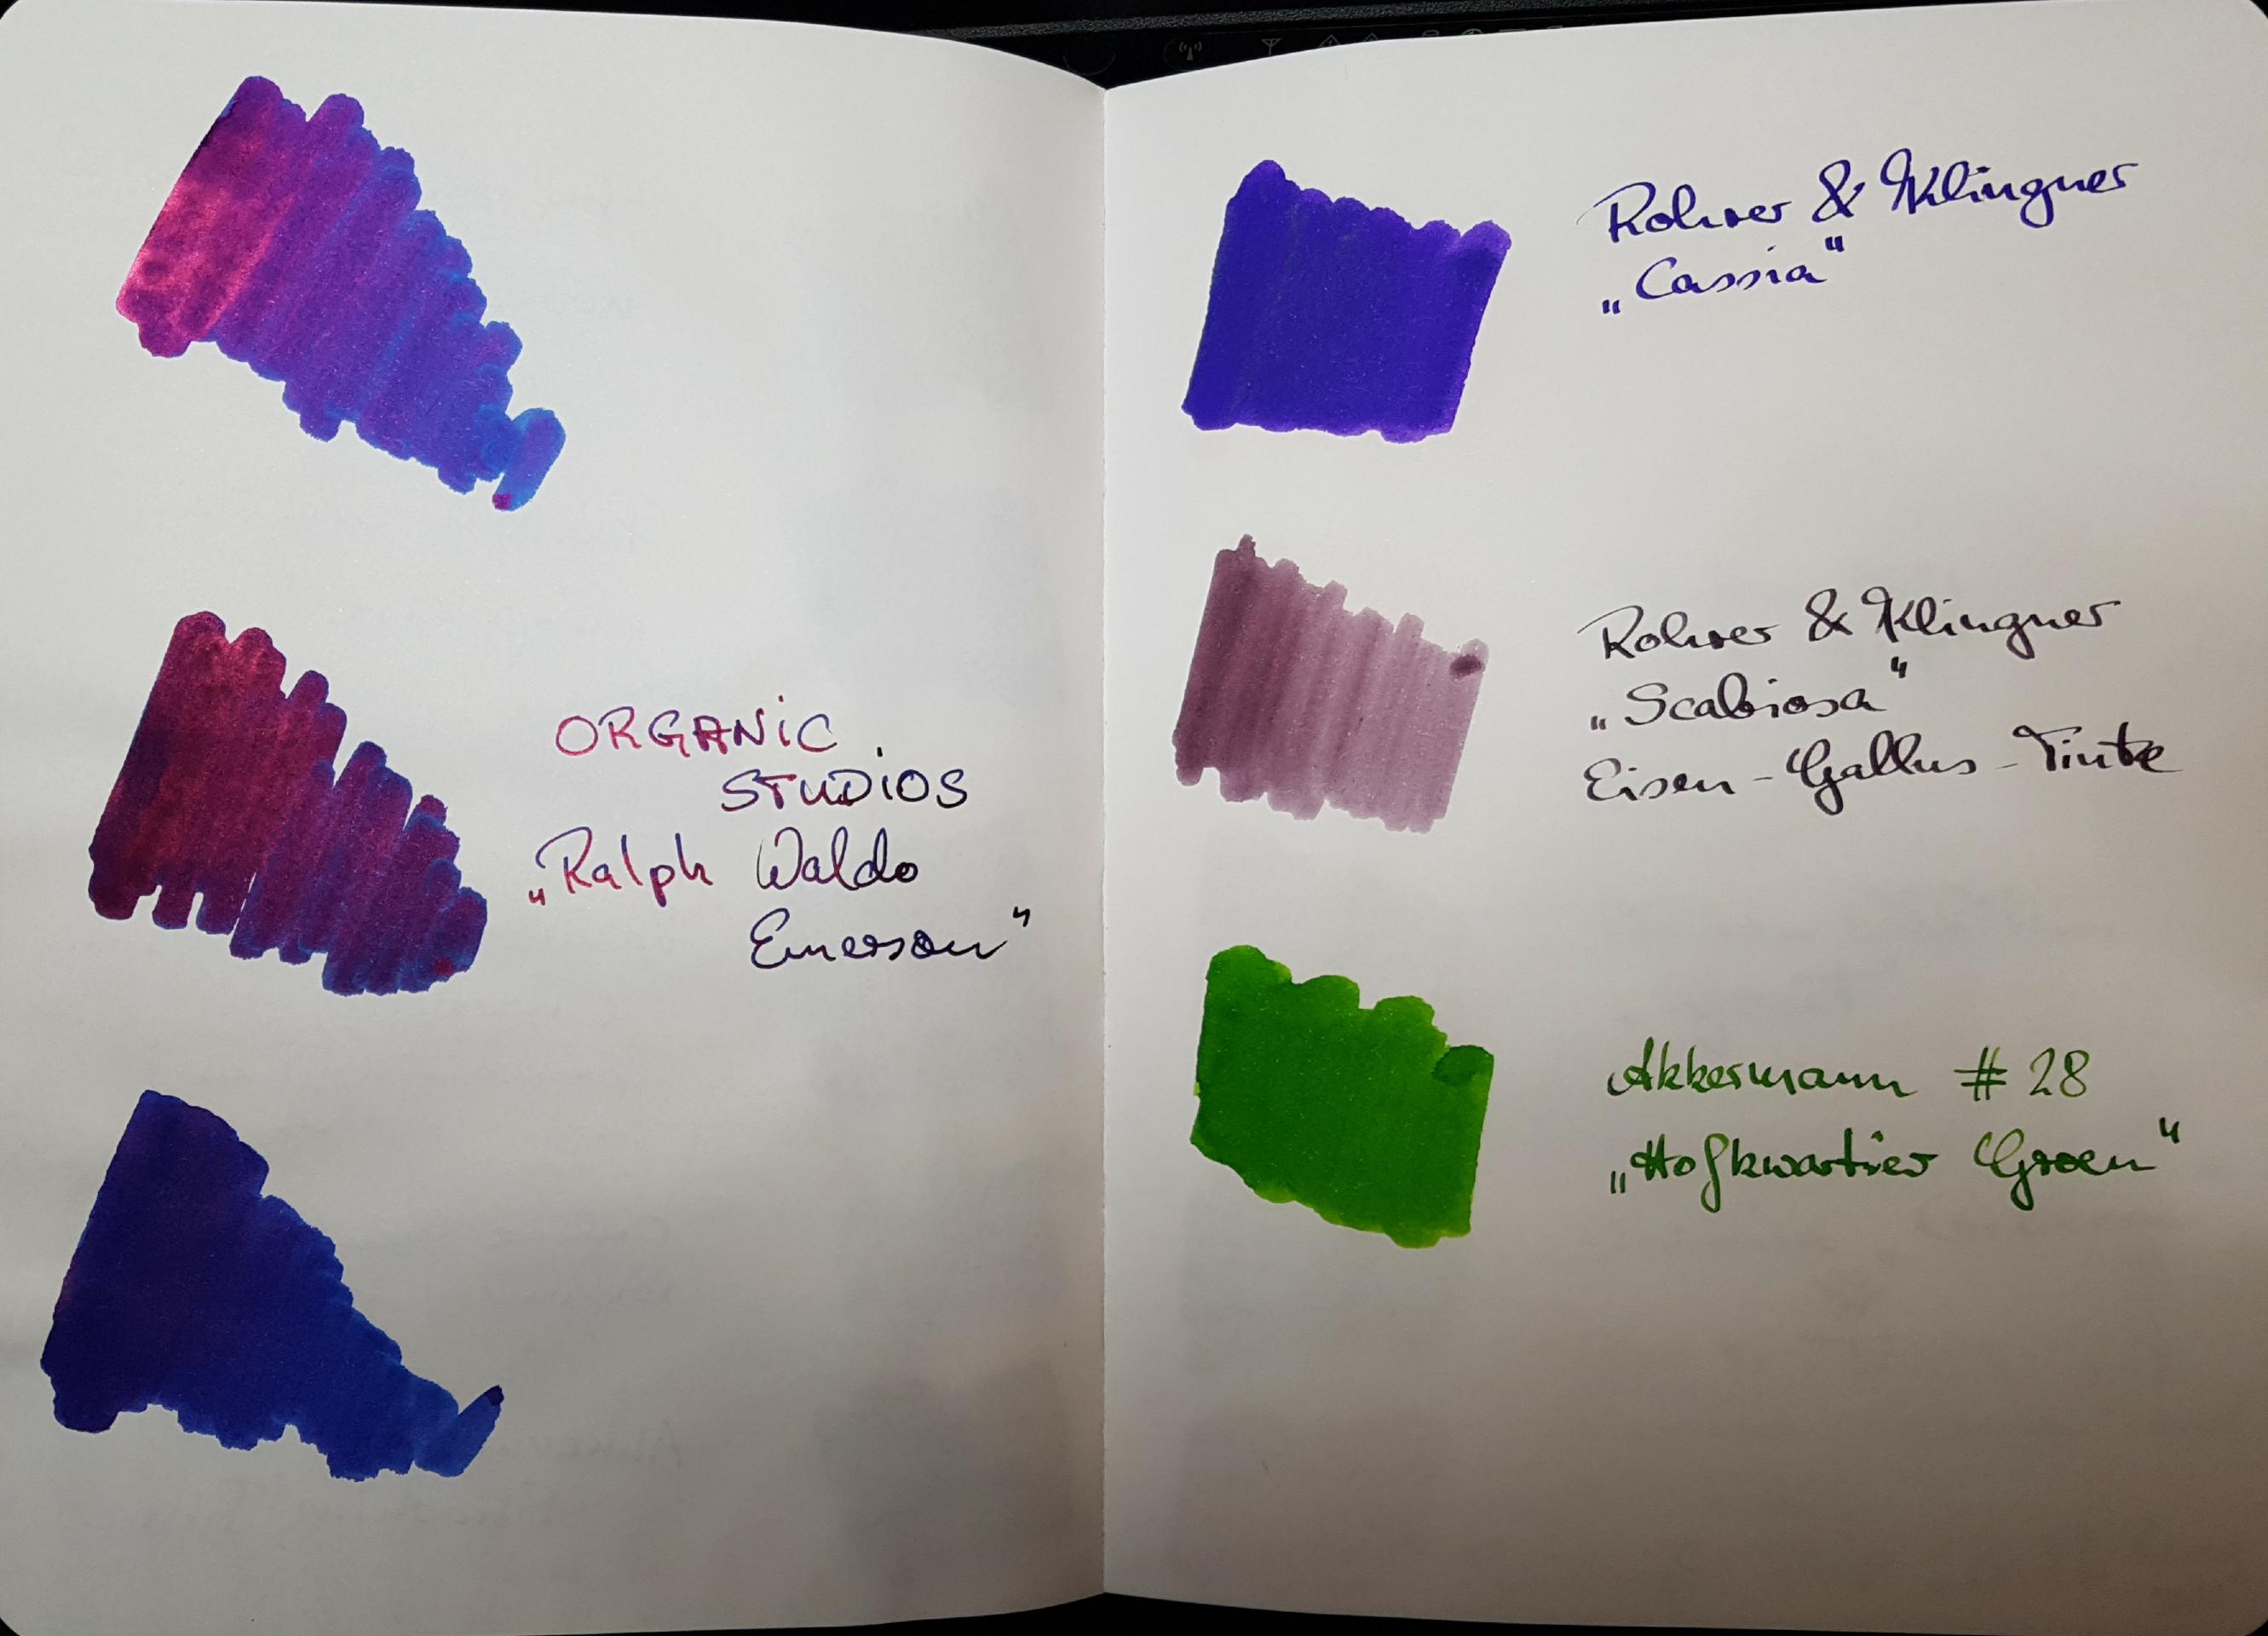 ORGANiC
STUDiOS
„Ralph Waldo
Emerson“
Rohrer & Klingner
„Cassia“
Rohrer & Klingner
„Scabiosa“
Eisen-Gallus-Tinte
Akkermann # 28
„Hofkwartier Groen“